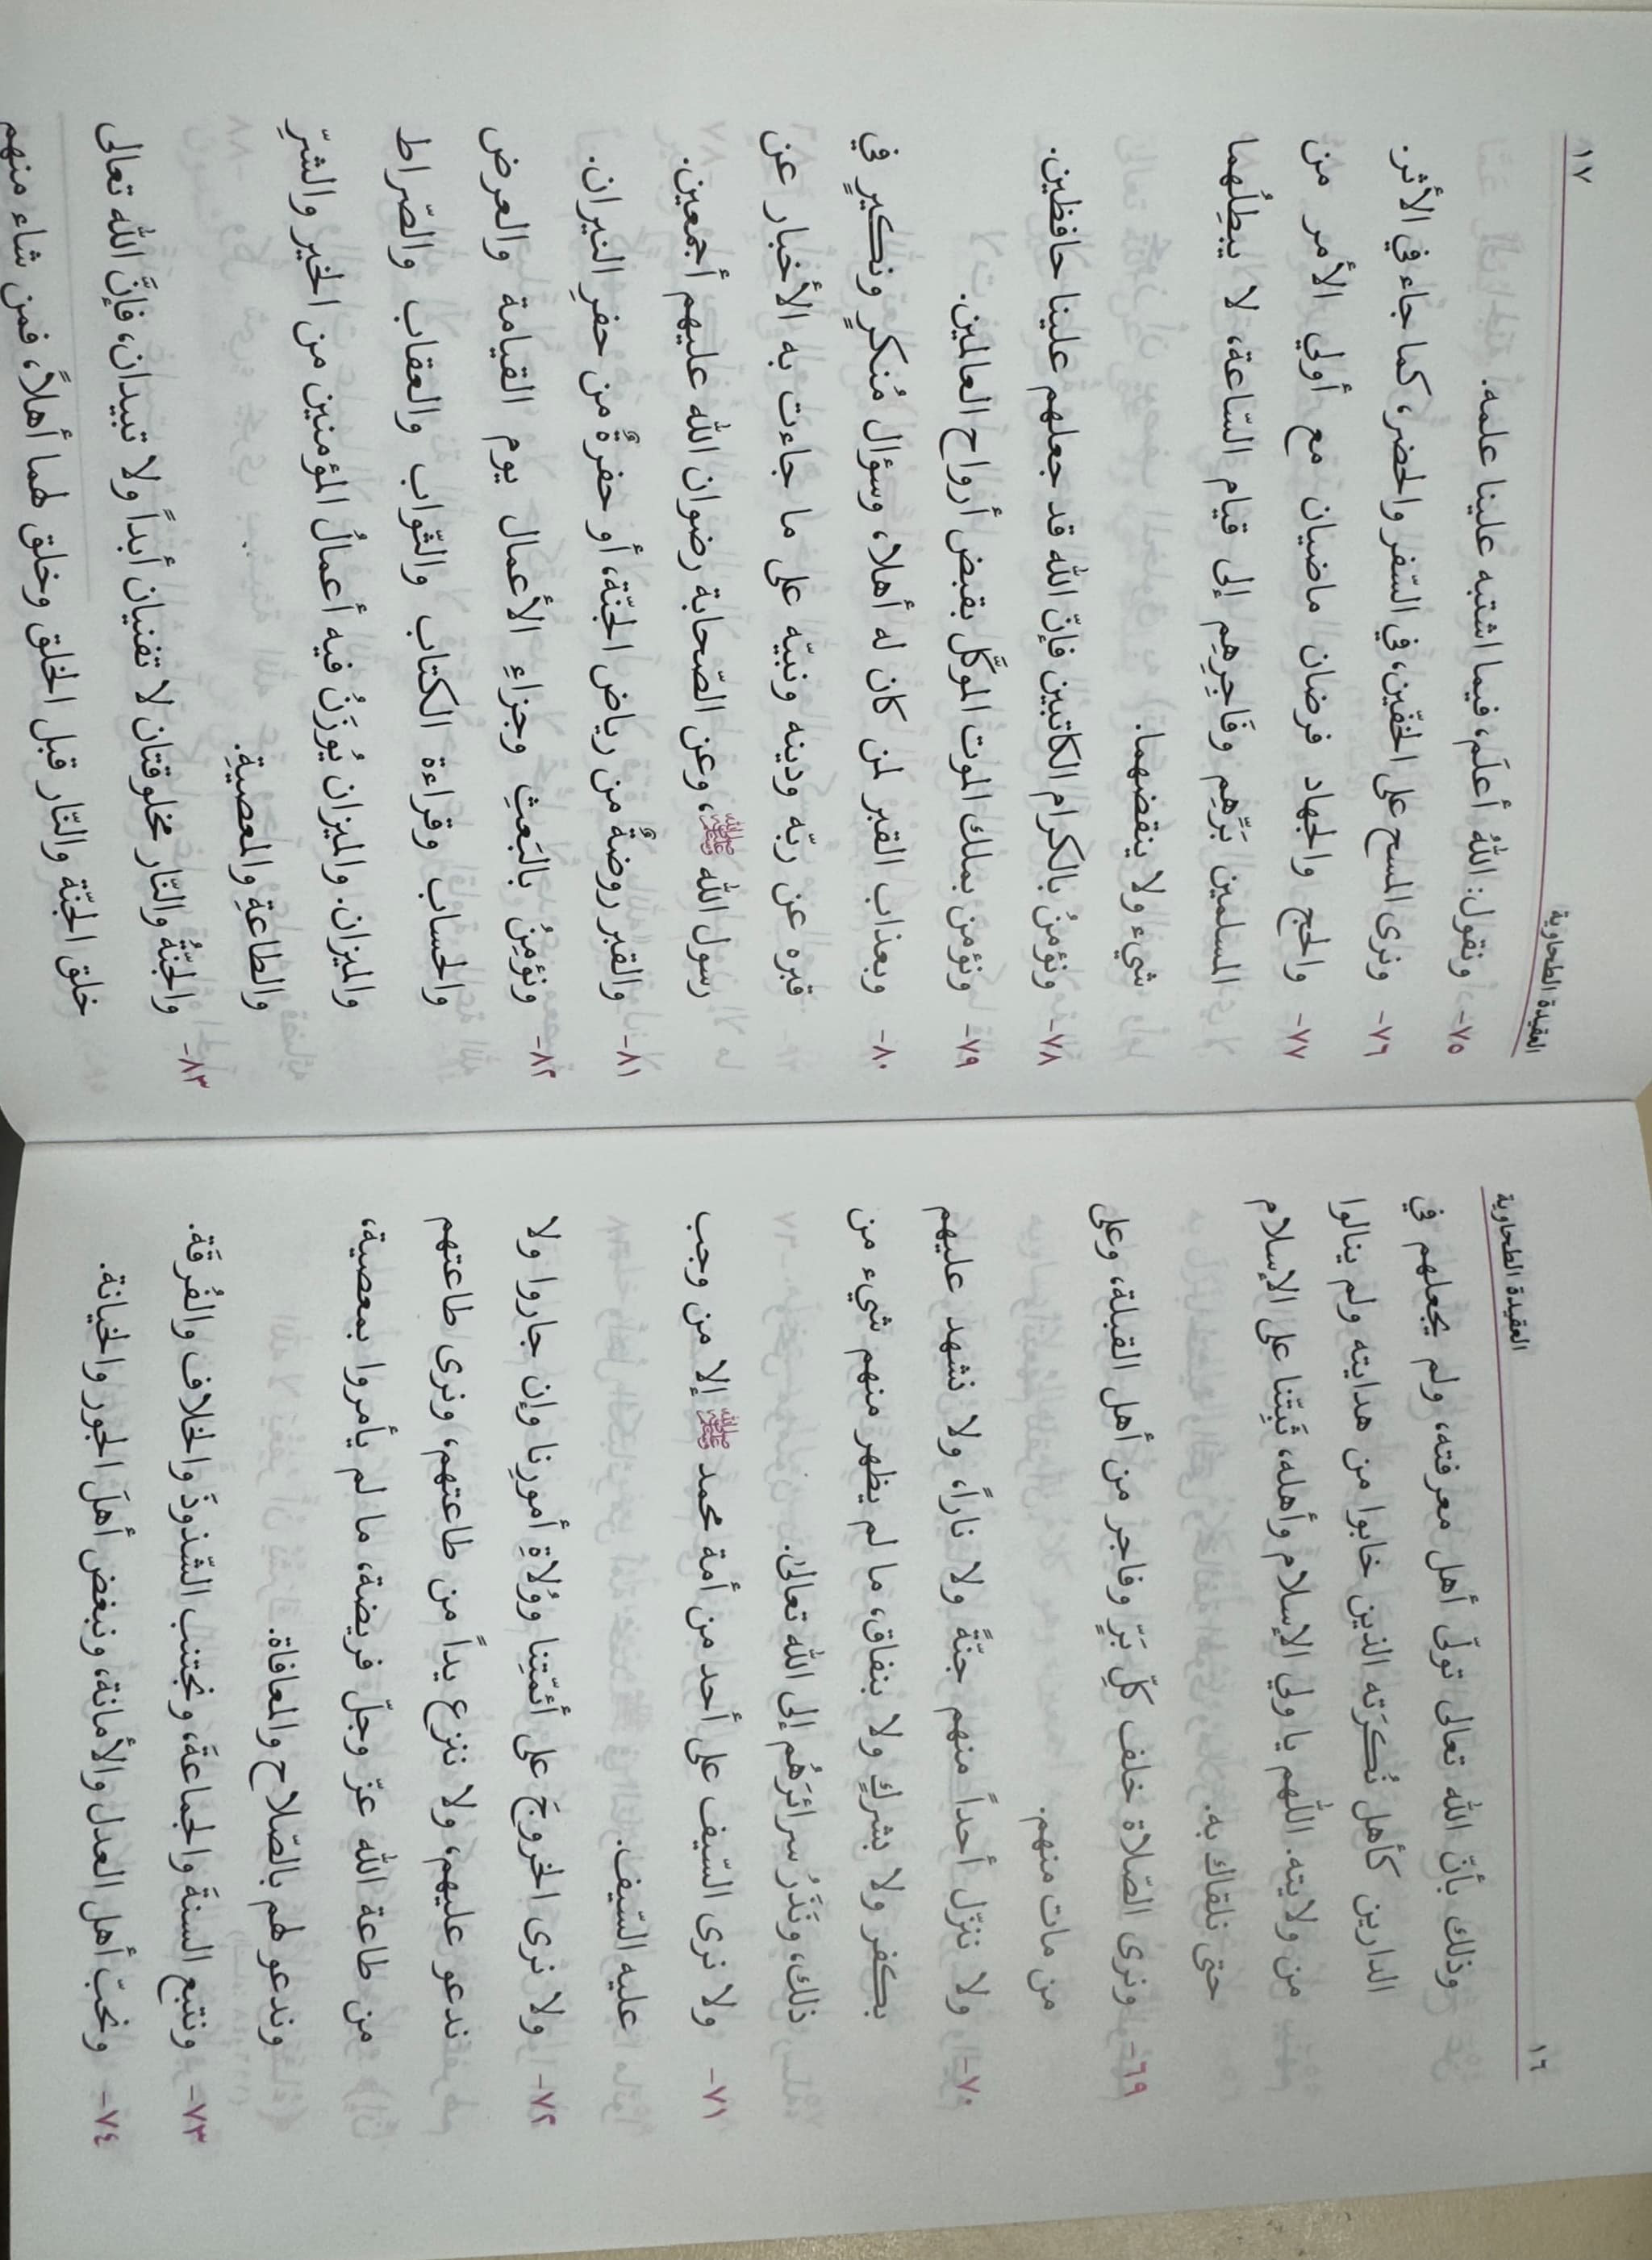 ١٦
العقيدة الطحاوية
وذلك بأنّ الله تعالى تولّى أهل معرفته، ولم يجعلهم في
الدارين كأهل نُكرَته الذين خابوا من هدايته ولم ينالوا
من ولايته. اللهم يا ولي الإسلام وأهله، ثَبِّتنا على الإسلام
حتى نلقاك به.
٦٩- ونرى الصّلاة خلف كلِّ بَرٍّ وفاجر من أهل القبلة، وعلى
من مات منهم.
٧٠- ولا ننزّل أحداً منهم جنّةً ولا ناراً، ولا نشهد عليهم
بكفر ولا بشركٍ ولا بنفاق، ما لم يظهر منهم شيء من
ذلك، ونَذَرُ سرائرَهُم إلى الله تعالى.
٧١- ولا نرى السّيف على أحد من أمة محمد ﷺ إلا من وجب
عليه السّيف.
٧٢- ولا نرى الخروجَ على أئمّتِنا ووُلاةِ أمورِنا وإن جاروا ولا
ندعو عليهم، ولا ننزع يداً من طاعتهم، ونرى طاعتهم
من طاعة الله عزّ وجلّ فريضة، ما لم يأمروا بمعصية،
وندعو لهم بالصّلاح والمعافاة.
٧٣- ونتبع السنةَ والجماعةَ، ونجتنب الشّذوذَ والخلاف والفُرقَة.
٧٤- ونحبّ أهل العدل والأمانة، ونبغض أهلَ الجور والخيانة.
العقيدة الطحاوية
١٧
٧٥- ونقول: اللهُ أعلَم، فيما اشتبه علينا علمه.
٧٦- ونرى المسح على الخفّين، في السّفر والحضر، كما جاء في الأثر.
٧٧- والحج والجهاد فرضان ماضيان مع أولي الأمر من
المسلمين بَرِّهِم وفَاجِرِهِم إلى قيام السّاعة، لا يبطلُهما
شيء ولا ينقضهما.
٧٨- ونؤمنُ بالكرام الكاتبين فإنّ الله قد جعلهم علينا حافظين.
٧٩- ونؤمن بملك الموت الموكَّل بقبض أرواح العالمين.
٨٠- وبعذاب القبر لمن كان له أهلا، وسؤال مُنكرٍ ونكيرٍ في
قبره عن ربّه ودينه ونبيّه على ما جاءت به الأخبار عن
رسول الله ﷺ، وعن الصّحابة رضوان الله عليهم أجمعين.
٨١- والقبر روضةٌ من رياض الجنّة، أو حفرةٌ من حفرِ النيران.
٨٢- ونؤمِنُ بالبَعثِ وجزاءِ الأعمال يوم القيامة والعرض
والحساب وقراءة الكتاب والثّواب والعقاب والصّراط
والميزان. والميزان يُوزَنُ فيه أعمالُ المؤمنين من الخير والشّرِّ
والطاعةِ والمعصيةِ.
٨٣- والجنَّةُ والنّار مخلوقتان لا تفنيان أبداً ولا تبيدان، فإنَّ الله تعالى
خلق الجنّة والنّار قبل الخلق وخلق لهما أهلاً، فمن شاء منهم